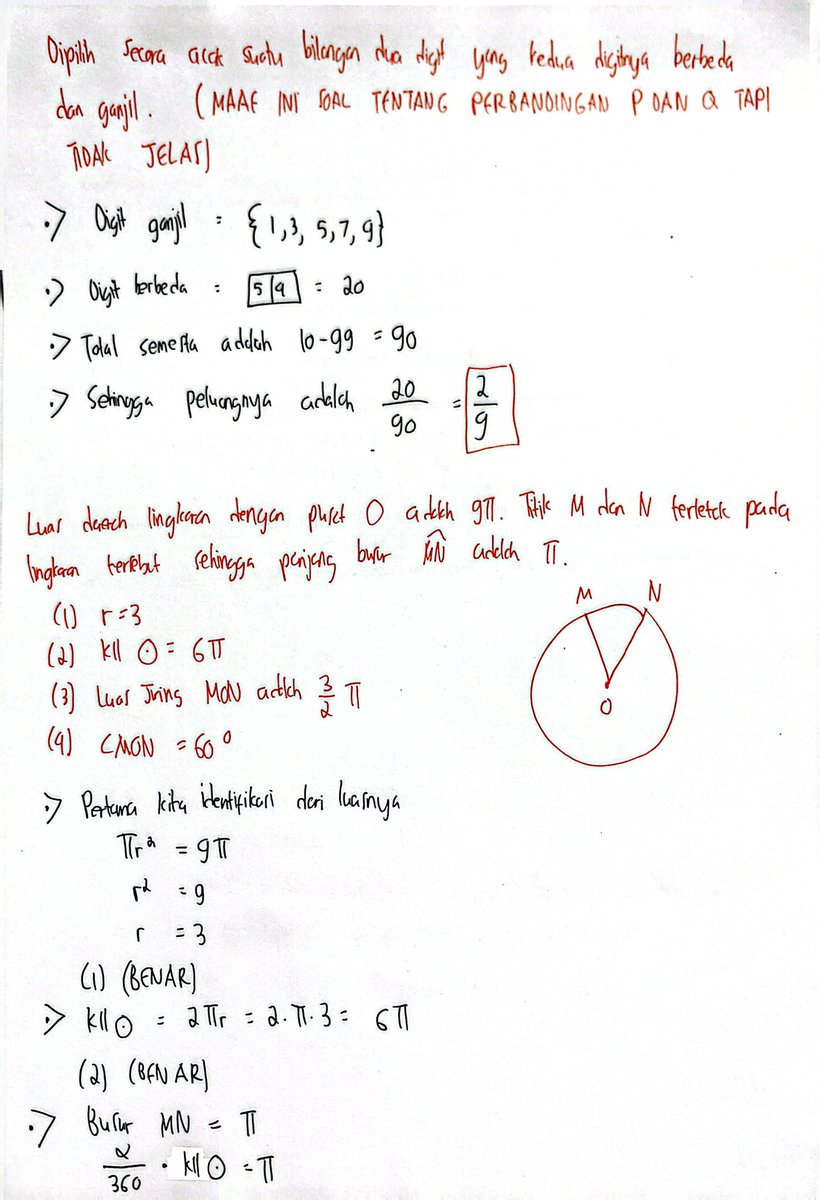 Dipilih secara acak suatu bilangan dua digit yang kedua digitnya berbeda
dan ganjil. (MAAF INI SOAL TENTANG PERBANDINGAN P DAN Q TAPI
TIDAK JELAS)
∴> Digit ganjil = {1,3, 5,7,9}
∴> Digit berbeda = 5|4 = 20
∴> Total semesta adalah 10-99 = 90
∴> Sehingga peluangnya adalah 20/90 = 2/9
Luas daerah lingkaran dengan pusat O adalah 9π. Titik M dan N terletak pada
lingkaran tersebut sehingga panjang busur MN adalah π.
M N
(1) r=3
(2) kll ⊙ = 6π
(3) Luas Juring MON adalah 3/2 π
O
(4) <MON = 60°
∴> Pertama kita identifikasi dari luasnya
πr² = 9π
r² = 9
r = 3
(1) (BENAR)
∴> kll ⊙ = 2πr = 2·π·3 = 6π
(2) (BENAR)
∴> Busur MN = π
α/360 · kll ⊙ = π